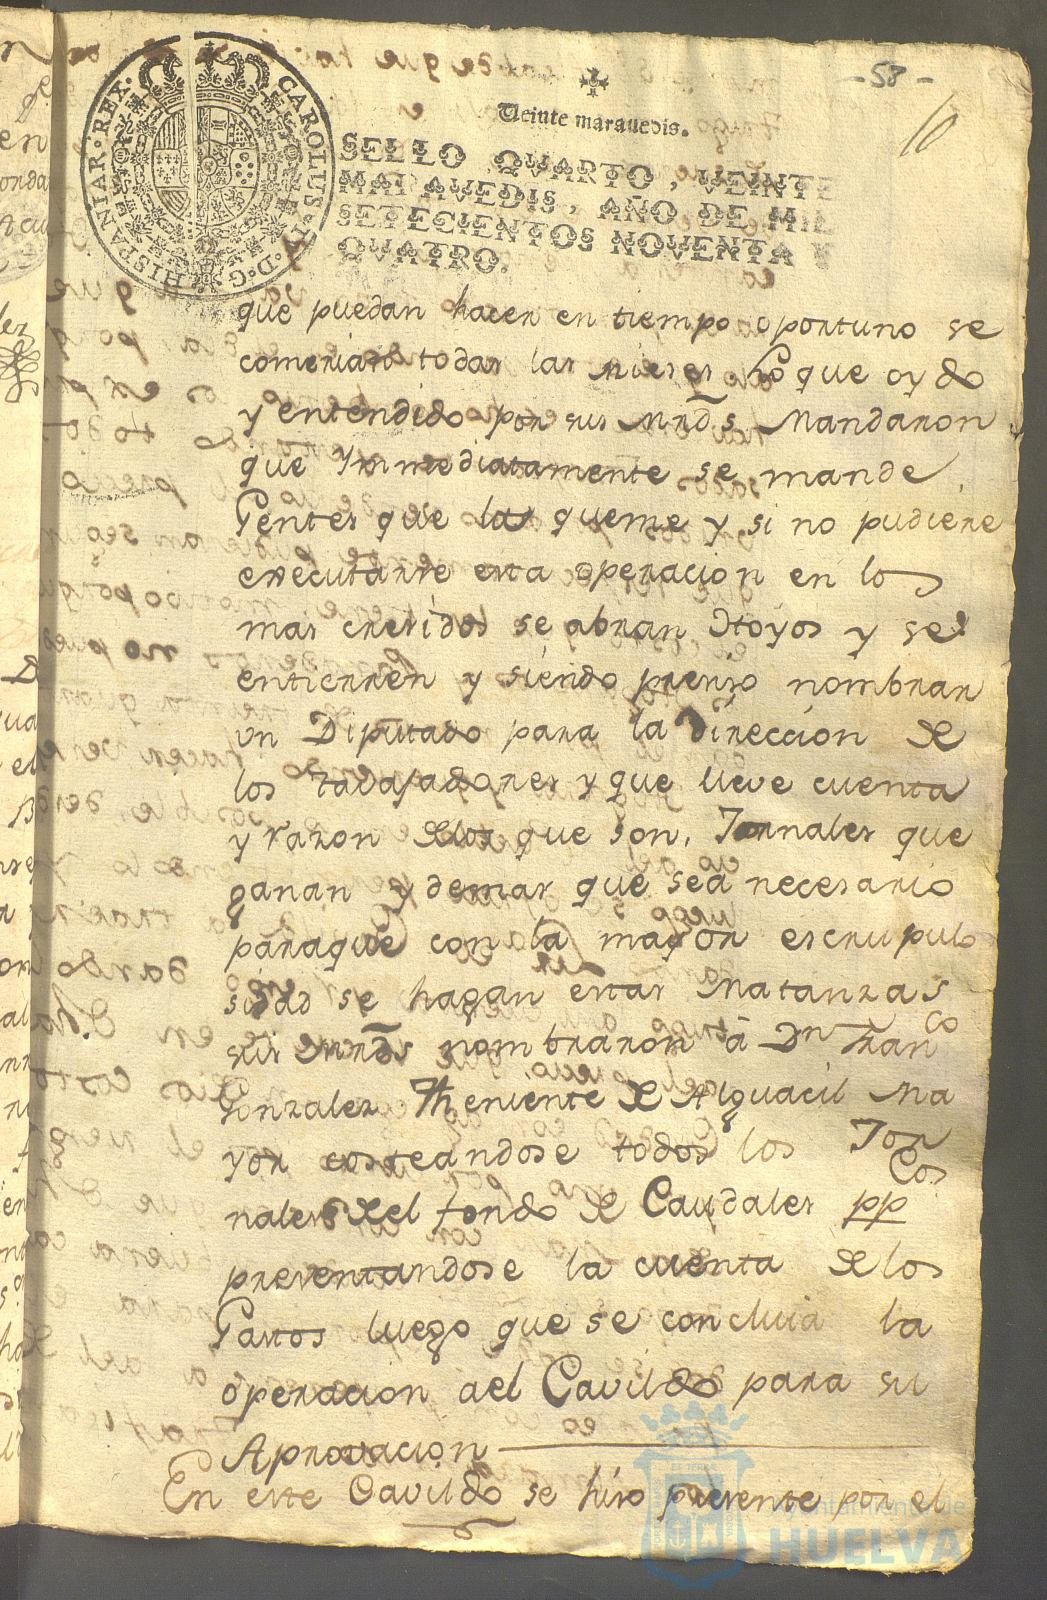 - 58 -
10
Veinte maravedis.
SELLO QVARTO, VEINTE
MARAVEDIS, AÑO DE MIL
SETECIENTOS NOVENTA Y
QVATRO.
CAROLUS · IV · D · G · HISPANIAR · REX ·
que puedan hacer en tiempo oportuno se
comerian todas las mieses Lo que oydo
y entendido por sus Mrds Mandaron
que Immediatamente se mande
Gentes que las queme y si no pudiere
executarse esta operacion en los
mas crecidos se abran Hoyos y se
entierren y siendo preciso nombrar
un Diputado para la direccion de
los travajadores y que lleve cuenta
y razon delos que son, Jornales que
ganan y demas que sea necesario
paraque con la mayor escrupulo
sidad se hagan estas Matanzas
sus Mrds nombraron á Dn Franco
Gonzalez Theniente de Alguacil Ma
yor costeandose todos los Jor
nales del fondo de Caudales ppcos
presentandose la cuenta delos
Gastos luego que se concluia la
operacion ael Cavildo para su
Aprovacion
En este Cavildo se hizo presente por el
Ayuntamiento de
HUELVA